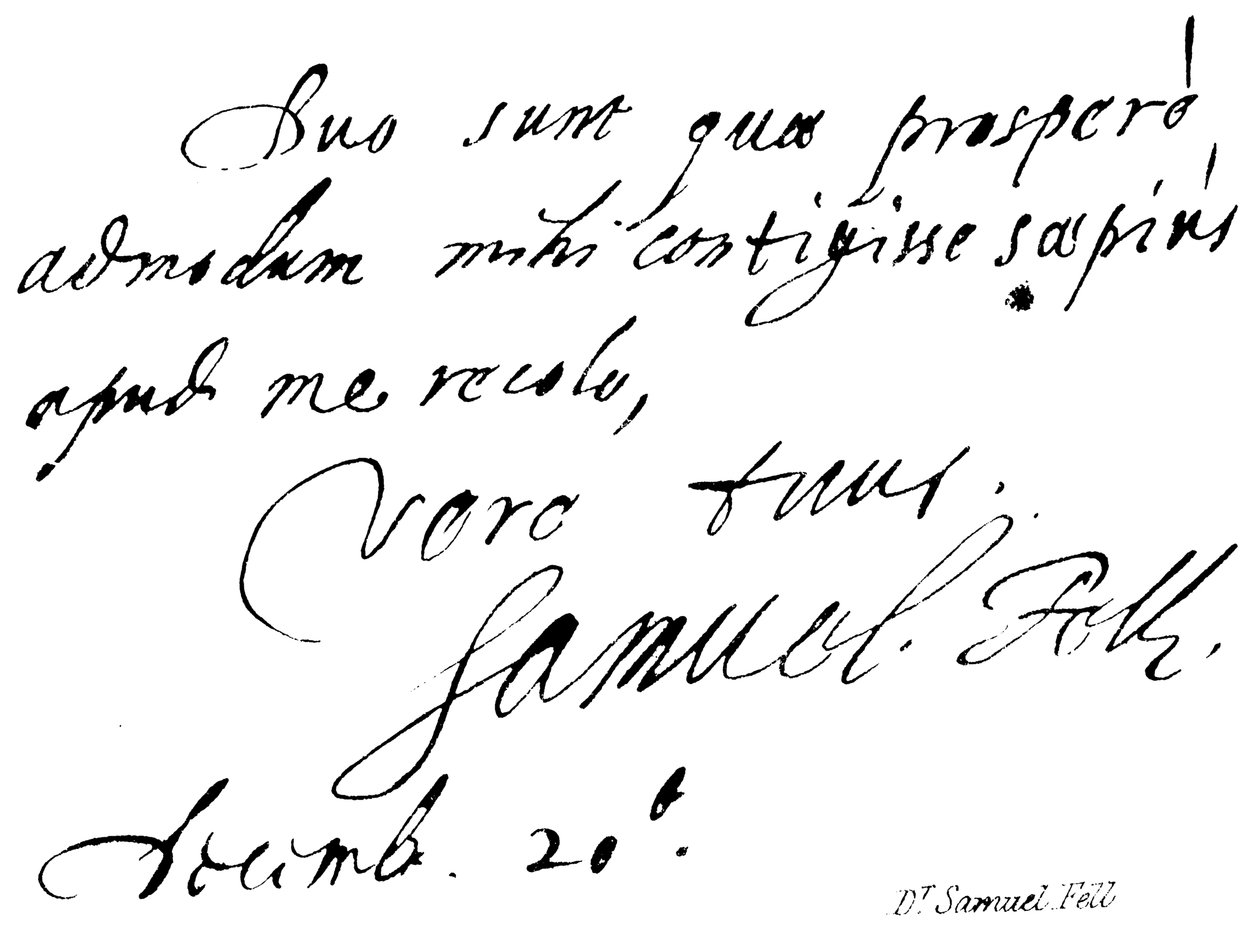 Duo sunt quæ prosperè
admodum mihi contigisse sæpiùs
apud me recolo,
Vere tuus.
Samuel. Fell.
Decemb. 20º.
Dʳ Samuel Fell